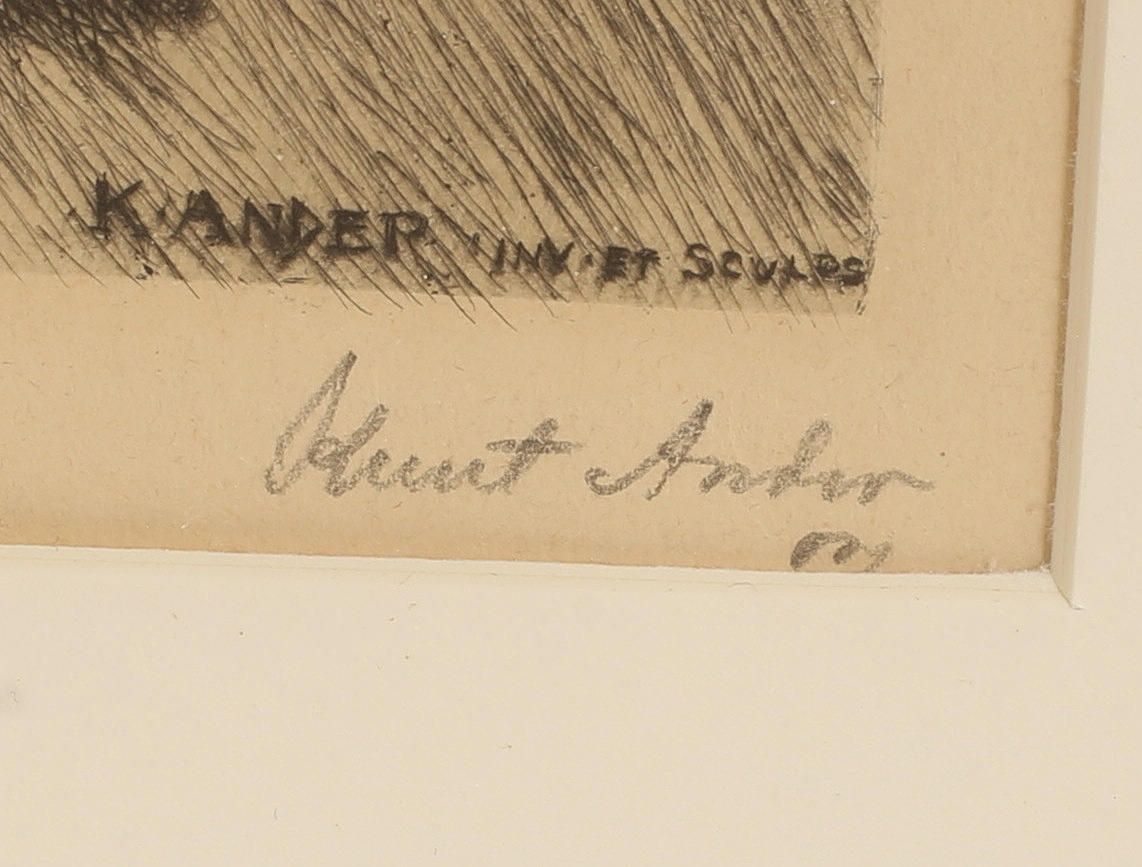 K. ANDER INV. ET SCULPS
Knut Ander